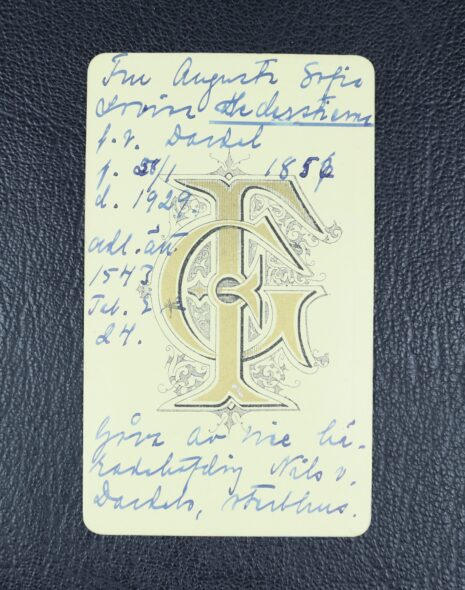 Fru Augusta Sofia
Lovisa Cederstierna
f. v. Dardel
f. 28/1 1856
d. 1929.
adl. ätt.
1543
Tab. 2
24.
GF
Gåva av vice hä-
radshövding Nils v.
Dardels, sterbhus.